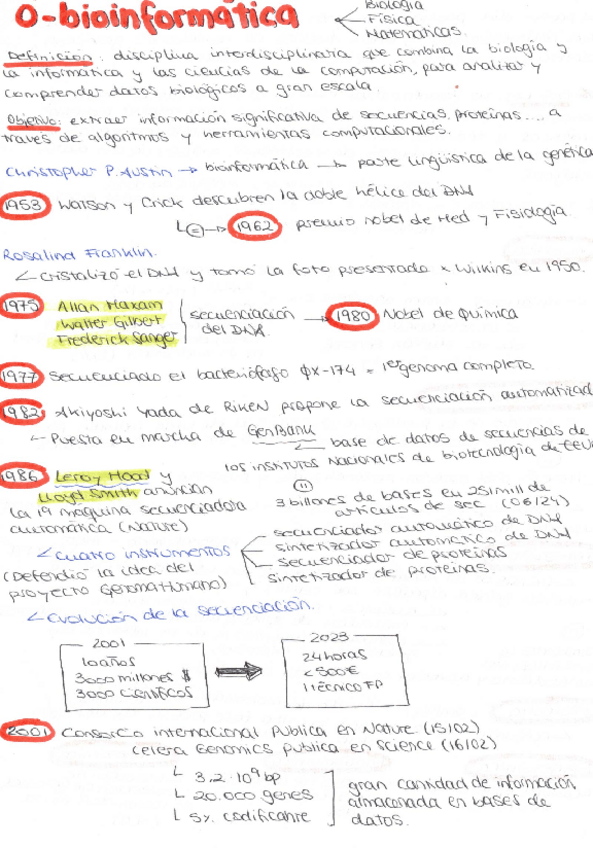 0-bioinformática
Biología
Física
Matemáticas.
Definición: disciplina interdisciplinaria que combina la biología y
la informática y las ciencias de la computación, para analizar y
comprender datos biológicos a gran escala.
Objetivo: extraer información significativa de secuencias, proteínas.... a
través de algoritmos y herramientas computacionales.
Christopher P. Austin → bioinformática → parte lingüística de la genética
1953 Watson y Crick descubren la doble hélice del DNA
1962 premio nobel de Med y Fisiología.
Rosalind Franklin.
Cristalizó el DNA y tomó la foto presentada x Wilkins en 1950.
1975 Allan Maxam
Walter Gilbert
Frederick Sanger
secuenciación
del DNA.
→ 1980 Nobel de Química
1977 secuenciado el bacteriófago φX-174 = 1er genoma completo.
1982 Akiyoshi Wada de Riken propone la secuenciación automatizad
Puesta en marcha de GenBank
base de datos de secuencias de
los institutos Nacionales de biotecnología de EEUU
3 billones de bases en 251 mill de
artículos de sec (06/24)
1986 Leroy Hood y
Lloyd Smith anuncian
la 1ª máquina secuenciadora
automática (Nature)
cuatro instrumentos
secuenciador automático de DNA
sintetizador automático de DNA
secuenciador de proteínas
sintetizador de proteínas.
(Defendió la idea del
proyecto Genoma Humano)
Evolución de la secuenciación.
2001
10 años
3000 millones $
3000 científicos
2023
24 horas
<500€
1 técnico FP
2001 Consorcio internacional publica en Nature (15/02)
Celera Genomics publica en Science (16/02)
3,2·10⁹ bp
20.000 genes
5% codificante
gran cantidad de información
almacenada en bases de
datos.